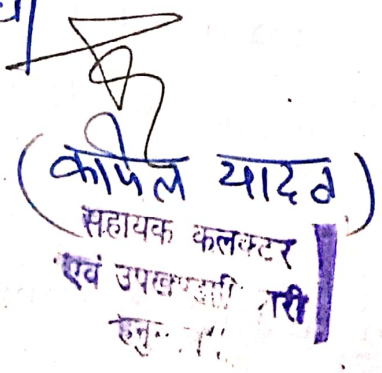 (कपिल यादव)
सहायक कलक्टर
एवं उपखण्ड